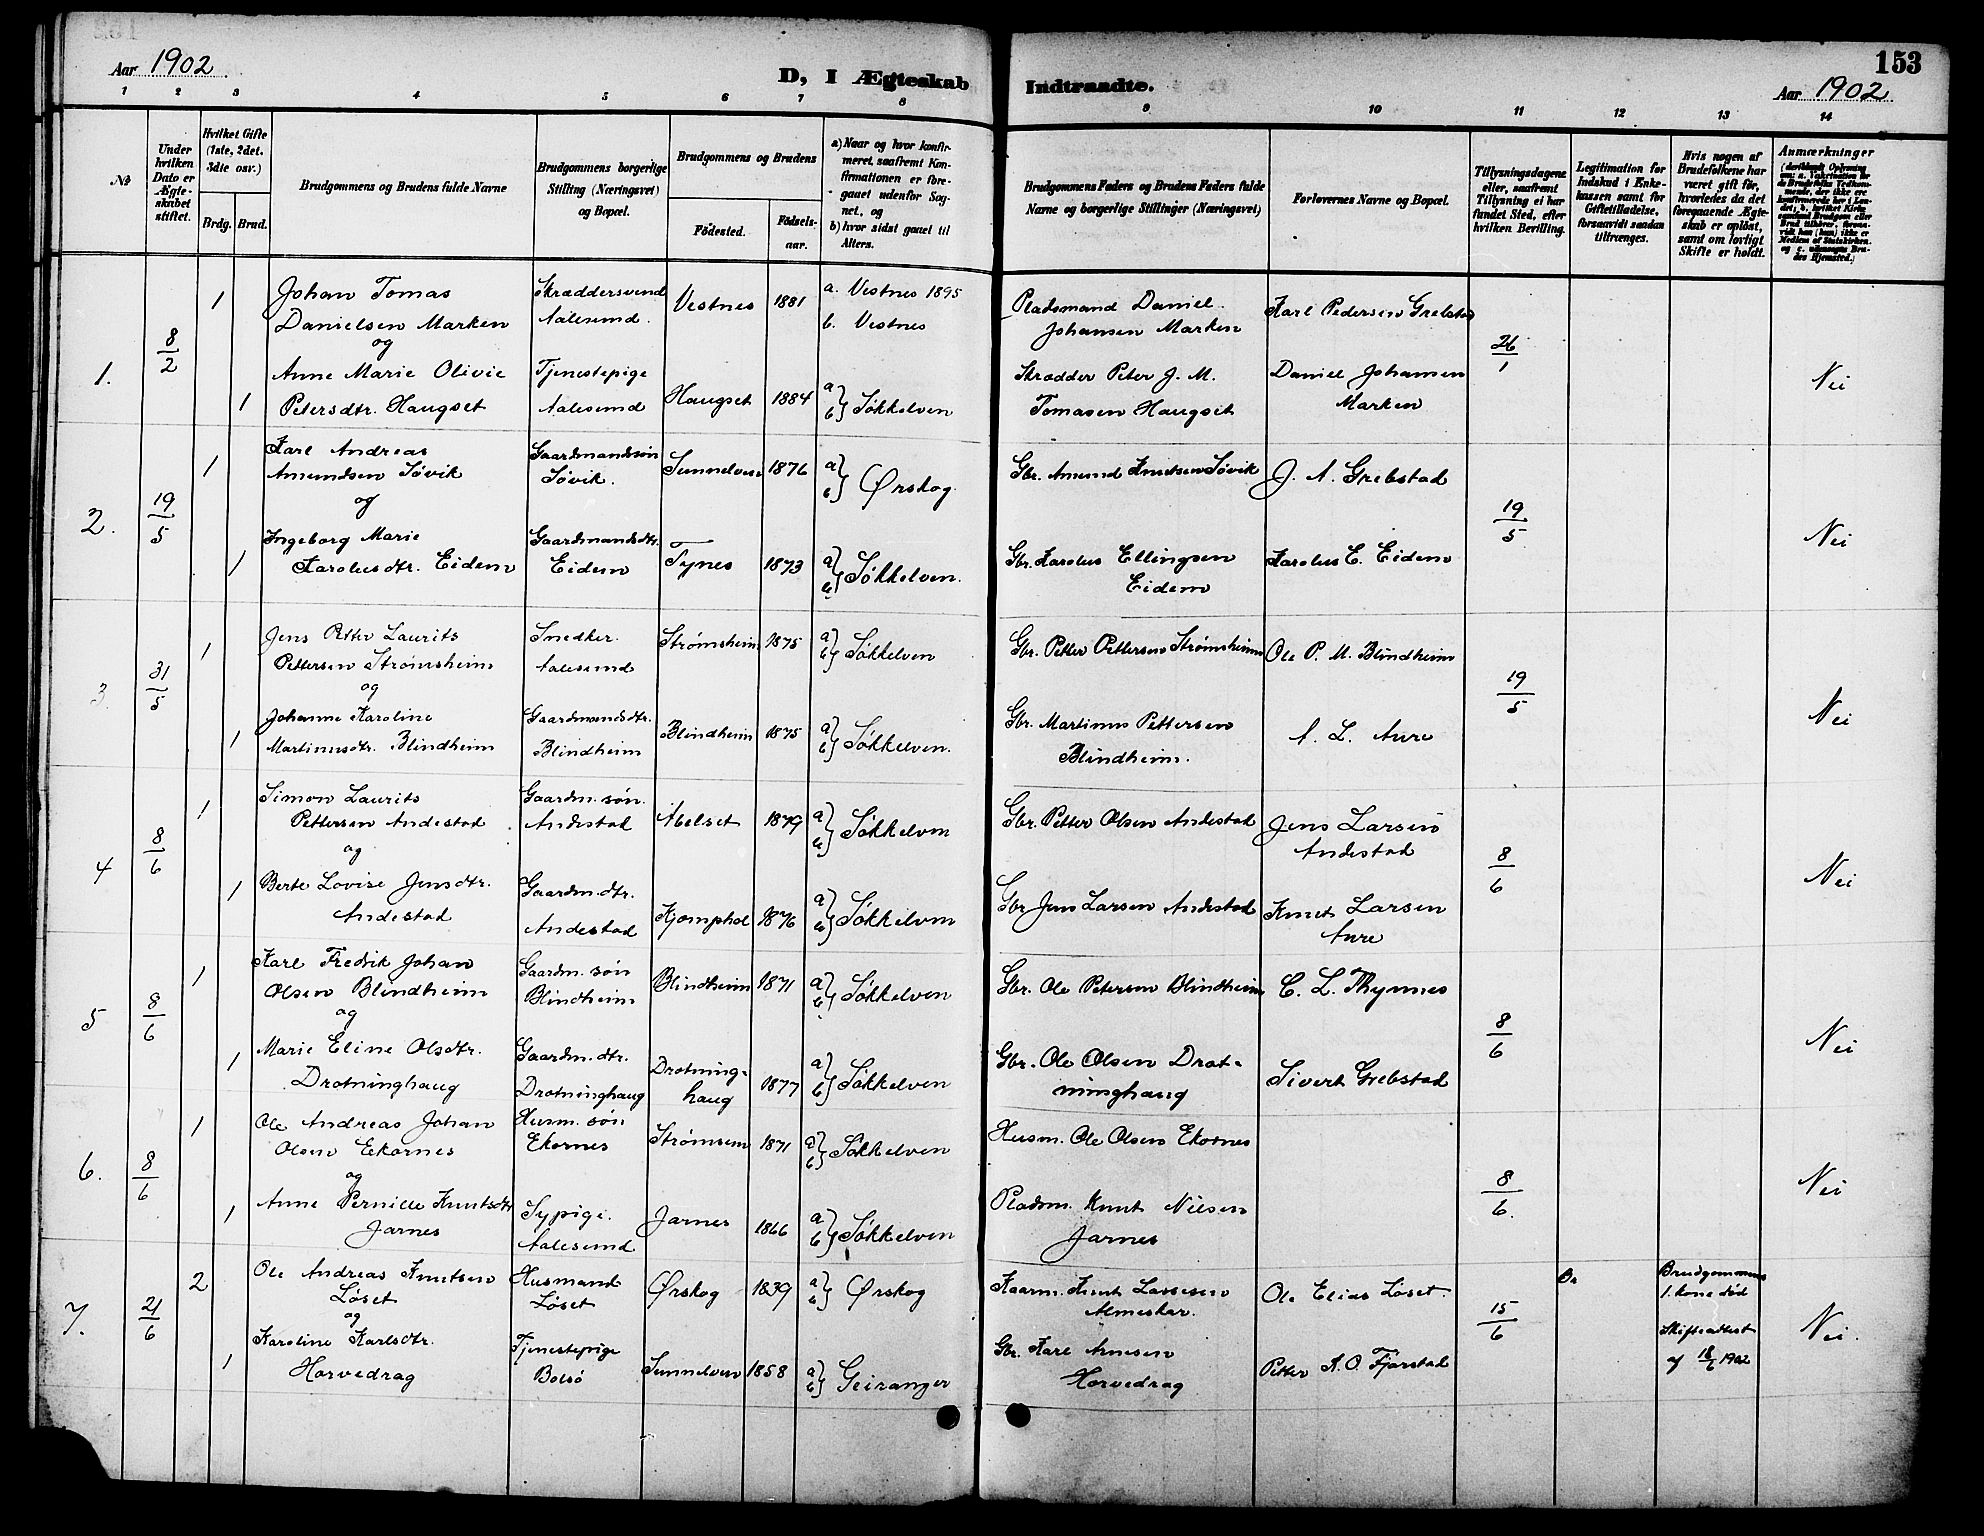 153
Aar 1902
D, I Ægteskab Indtraadte.
Aar 1902
1 2 3 4 5 6 7 8 9 10 11 12 13 14
№
Under hvilken Dato er Ægteskabet stiftet.
Hvilket Gifte (1ste, 2det, 3die osv.)
Brdg. Brud.
Brudgommens og Brudens fulde Navne
Brudgommens borgerlige Stilling (Næringsvei) og Bopæl.
Brudgommens og Brudens
Födested.
Födsels-aar.
a) Naar og hvor konfirmeret, saafremt Konfirmationen er foregaaet udenfor Sognet, og
b) hvor sidst gaaet til Alters.
Brudgommens Faders og Brudens Faders fulde Navne og borgerlige Stillinger (Næringsvei)
Forlovernes Navne og Bopæl.
Tillysningsdagene eller, saafremt Tillysning ei har fundet Sted, efter hvilken Bevilling.
Legitimation for Indskud i Enkekassen samt for Giftetilladelse, forsaavidt saadan tiltrænges.
Hvis nogen af Brudefolkene har været gift før, hvorledes da det foregaaende Ægteskab er opløst, samt om lovligt Skifte er holdt.
Anmærkninger
1. 8/2
1 Johan Tomas Danielsen Marken Skræddersvend Aalesund. Vestnes 1881 a. Vestnes 1895 b. Vestnes Pladsmand Daniel Johansen Marken Karl Pedersen Grebstad 26/1 Nei
og
1 Anne Marie Olivie Petersdtr. Haugset Tjenestepige Aalesund Haugset 1884 a b} Søkkelven Skrædder Peter J. M. Tomasen Haugset Daniel Johansen Marken
2. 19/5
1 Karl Andreas Amundsen Søvik Gaardmandssøn Søvik. Sunnelven 1876 a b} Ørskog Gbr. Amund Knutsen Søvik J. A. Grebstad 19/5 Nei
og
1 Ingeborg Marie Karolusdtr. Eidem Gaardmandsdtr. Eidem Tynes 1873 a b} Søkkelven. Gbr. Karolus Ellingsen Eidem Karolus E. Eidem
3. 31/5
1 Jens Petter Laurits Pettersen Strømsheim Snedker. Aalesund Strømsheim 1875 a b} Søkkelven Gbr. Petter Pettersen Strømsheim Ole P. M. Blindheim 19/5 Nei
og
1 Johanne Karoline Martinusdtr. Blindheim Gaardmandsdtr. Blindheim Blindheim 1875 a b} Søkkelven. Gbr. Martinus Pettersen Blindheim. A. L. Aure
4 8/6
1 Simon Laurits Pettersen Andestad Gaardm. søn. Andestad Abelset 1879 a b} Søkkelven Gbr. Petter Olsen Andestad Jens Larsen Andestad 8/6 Nei
og
1 Berte Lovise Jensdtr. Andestad Gaardm. dtr. Andestad Kjemphol 1876 a b} Søkkelven Gbr Jens Larsen Andestad Knut Larsen Aure
5 8/6
1 Karl Fredrik Johan Olsen Blindheim Gaardm. søn Blindheim Blindheim 1871 a b} Søkkelven Gbr. Ole Petersen Blindheim C. L. Thynnes 8/6 Nei
og
1 Marie Eline Olsdtr. Drotninghaug Gaardm. dtr. Drotninghaug Drotning-haug 1877 a b} Søkkelven Gbr. Ole Olsen Drot-ninghaug Sivert Grebstad
6. 8/6
1 Ole Andreas Johan Olsen Ekornes Husm. søn Ekornes Strømsem 1871 a b} Søkkelven Husm. Ole Olsen Ekornes 8/6. Nei
og
1 Anne Pernille Knutsdtr Jarnes Sypige. Aalesund Jarnes 1866 a b} Søkkelven Pladsm. Knut Nilsen Jarnes
7. 21/6
2 Ole Andreas Knutsen Løset Husmand Løset Ørskog 1839 a b} Ørskog Knut Lassesen Almeskar. Ole Elias Løset. 15/6 Brudgommens 1. kone død Skifteattest af 1902 Nei.
og
1 Karoline Karlsdtr. Horvedrag Tjenestepige Bolsö Sunnelven 1858 a b} Geiranger Gbr. Karl Arnesen Horvedrag Petter K. O. Fjørstad